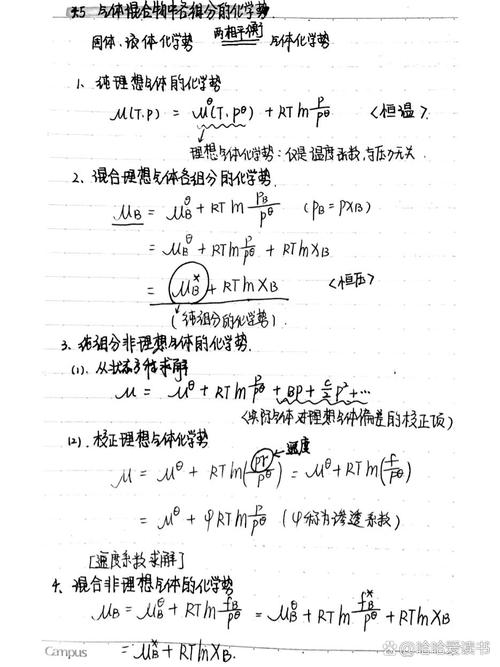 §5 气体混合物中各组分的化学势
固体、液体化学势 两相平衡 气体化学势
1、纯理想气体的化学势
μ(T.P) = μ^θ(T.P^θ) + RT ln P/P^θ <恒温>
理想气体化学势:仅是温度函数,与压力无关
2、混合理想气体各组分的化学势
μ_B = μ_B^θ + RT ln P_B/P^θ (P_B = PX_B)
= μ_B^θ + RT ln P/P^θ + RT ln X_B
= μ_B^* + RT ln X_B <恒压>
(纯组分的化学势)
3、纯组分非理想气体的化学势
(1)、从状态方程求解
μ = μ^θ + RT ln P/P^θ + BP + C/2 P² + …
<实际气体对理想气体偏差的校正项>
(2)、校正理想气体化学势
μ = μ^θ + RT ln(Pr/P^θ) = μ^θ + RT ln(f/P^θ) ← 逸度
= μ^θ + φRT ln P/P^θ (φ称为渗透系数)
[逸度系数求解]
4、混合非理想气体的化学势
μ_B = μ_B^θ + RT ln f_B/P^θ = μ_B^θ + RT ln f_B^*/P^θ + RT ln X_B
= μ_B^* + RT ln X_B.
Campus
哈哈爱读书